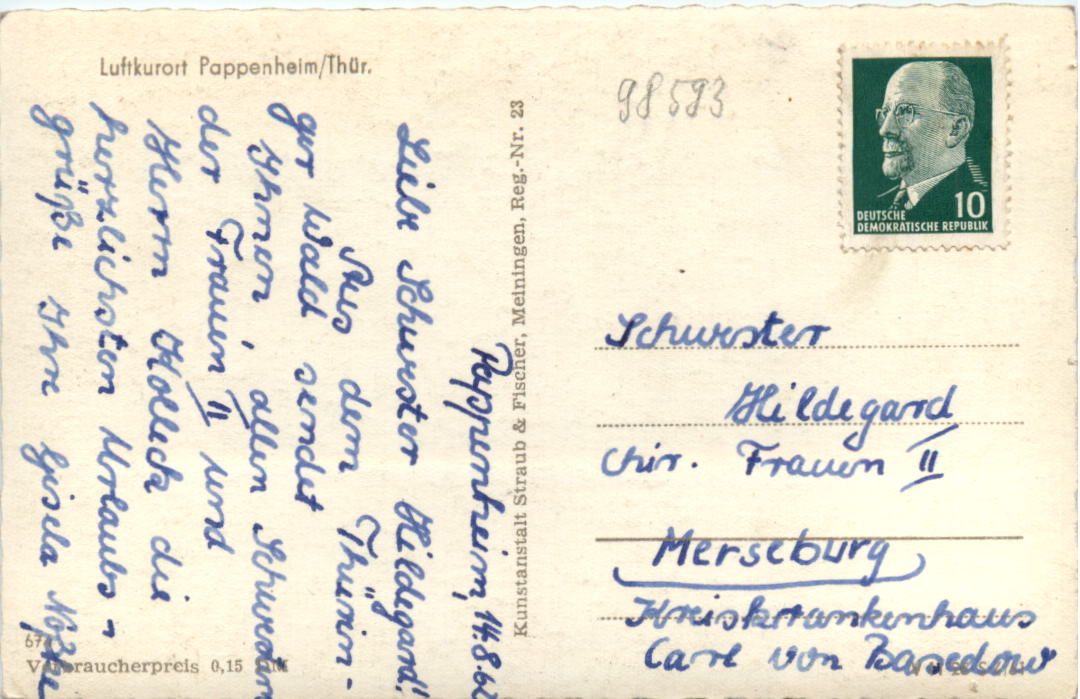 Luftkurort Pappenheim/Thür.
Pappenheim, 14.8.
Liebe Schwester Hildegard!
Aus dem Thürin-
ger Wald sendet
Ihnen, allen Schwestern
der Frauen II und
Herrn Kollech die
herzlichsten Urlaubs-
grüße Ihre Gisela
67
Verbraucherpreis 0,15 DM
Kunstanstalt Straub & Fischer, Meiningen, Reg.-Nr. 23
98593
DEUTSCHE
DEMOKRATISCHE REPUBLIK
10
Schwester
Hildegard
Chir. Frauen II
Merseburg
Kreiskrankenhaus
Carl von Basedow